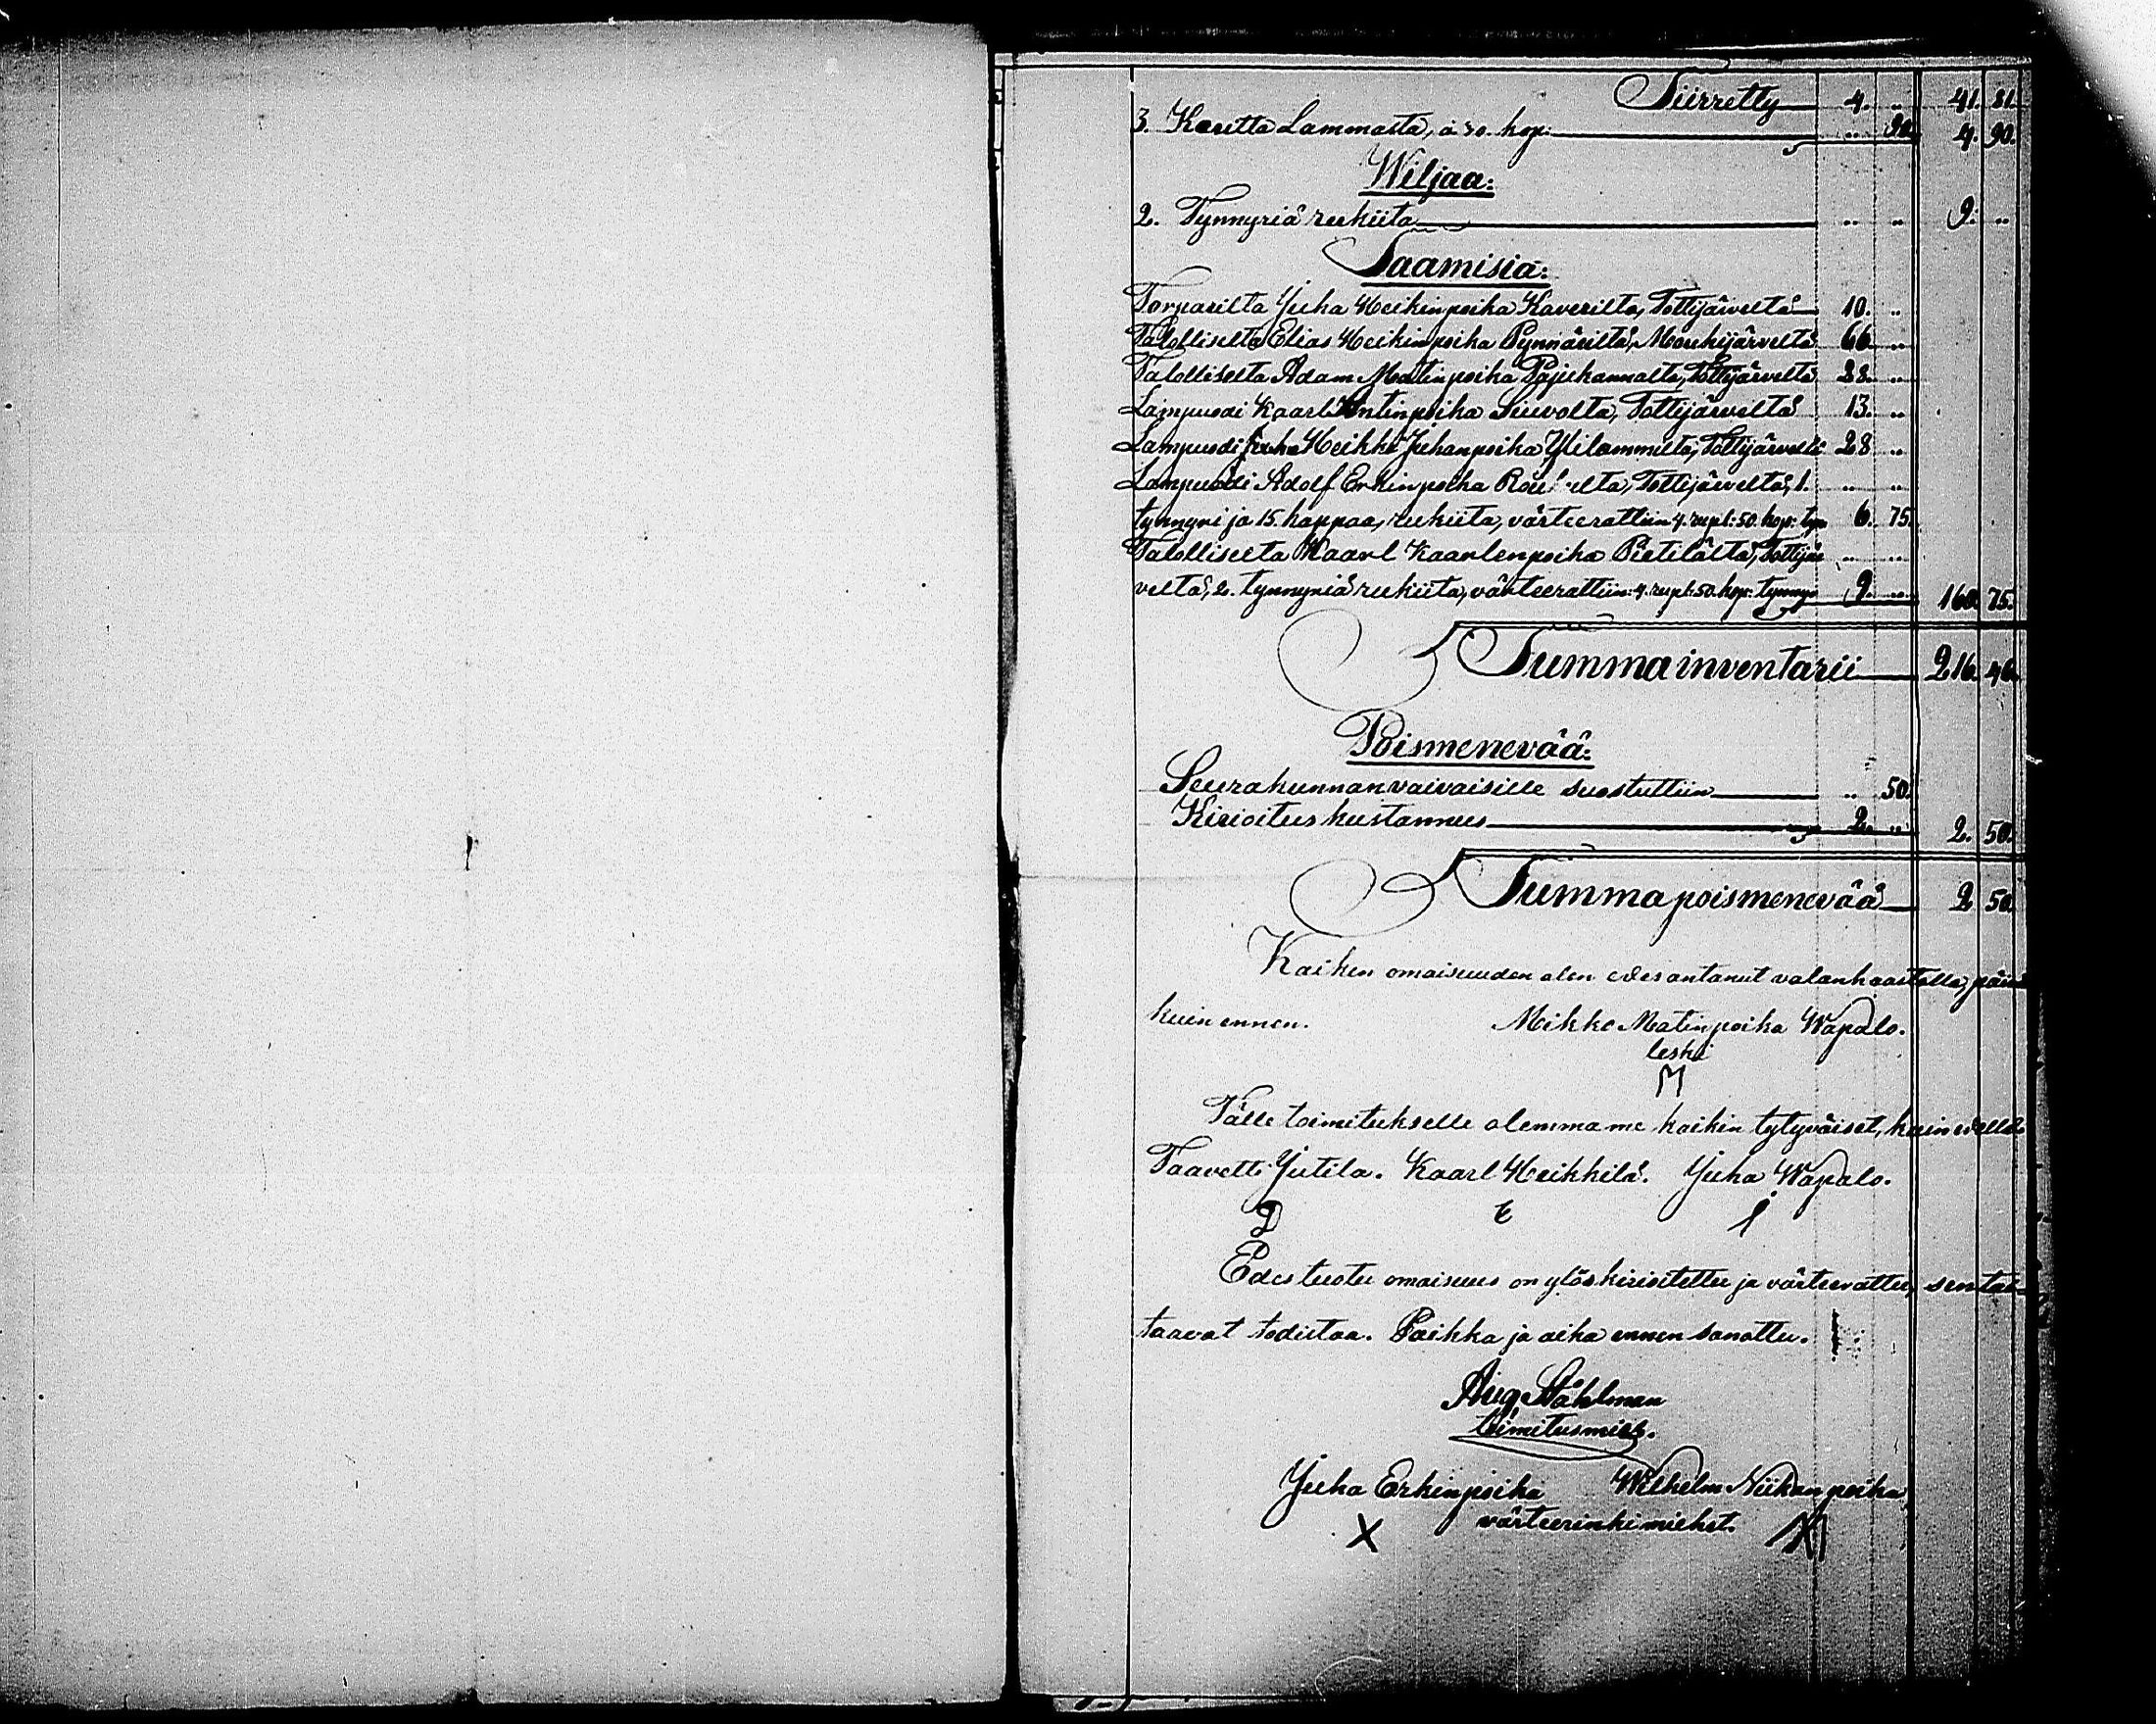 Siirretty 4. .. 41. 81.
3. Keritta Lammasta, á 30. kop: .. 90. 4. 90.
Wiljaa:
2. Tynnyriä rukiita .. .. 9. ..
Saamisia:
Torparilta Juha Heikinpoika Kaverilta, Tottijärveltä 10. ..
Talolliselta Elias Heikinpoika Pynnäriltä, Mouhijärveltä 66. ..
Talolliselta Adam Matinpoika Pajukannalta, Tottijärveltä 28. ..
Lampuodi Kaarl Antinpoika Siuvolta, Tottijärveltä 13. ..
Lampuodi Heikki Juhanpoika Ylilammilta, Tottijärveltä 28 ..
Lampuodi Adolf Erkinpoika Tottijärveltä, 1. .. ..
tynnyri ja 15. kappaa, rukiita, värteerattiin 4. rupl: 50. kop: tyn 6. 75.
Talolliselta Kaarl Kaarlenpoika Pietilältä, Tottijär .. ..
veltä, 2. tynnyriä rukiita, värteerattiin: 4. rupl: 50. kop: tynnyr 9. .. 160. 75.
Summa inventarii 216. 46.
Poismenevää:
Seurakunnan vaivaisille suostuttiin .. 50.
Kirioitus kustannus 2. .. 2. 50.
Summa poismenevää 2 50.
Kaiken omaisuuden olen edesantanut valanhaastolla, päivä
kuin ennen. Mikko Matinpoika Wapalo.
leski
M
Tälle toimitukselle olemma me kaikin tytyväiset, kuin edellä
Taavetti Jutila. Kaarl Heikkilä. Juha Wapalo.
D E J
Edestuotu omaisuus on ylöskirioitettu ja värteerattu, sen tai
taavat todistaa. Paikka ja aika ennen sanottu.
Aug Ståhlman
toimitusmies.
Juha Erkinpoika Wilhelm Niikanpoika
värteerinkimiehet.
X